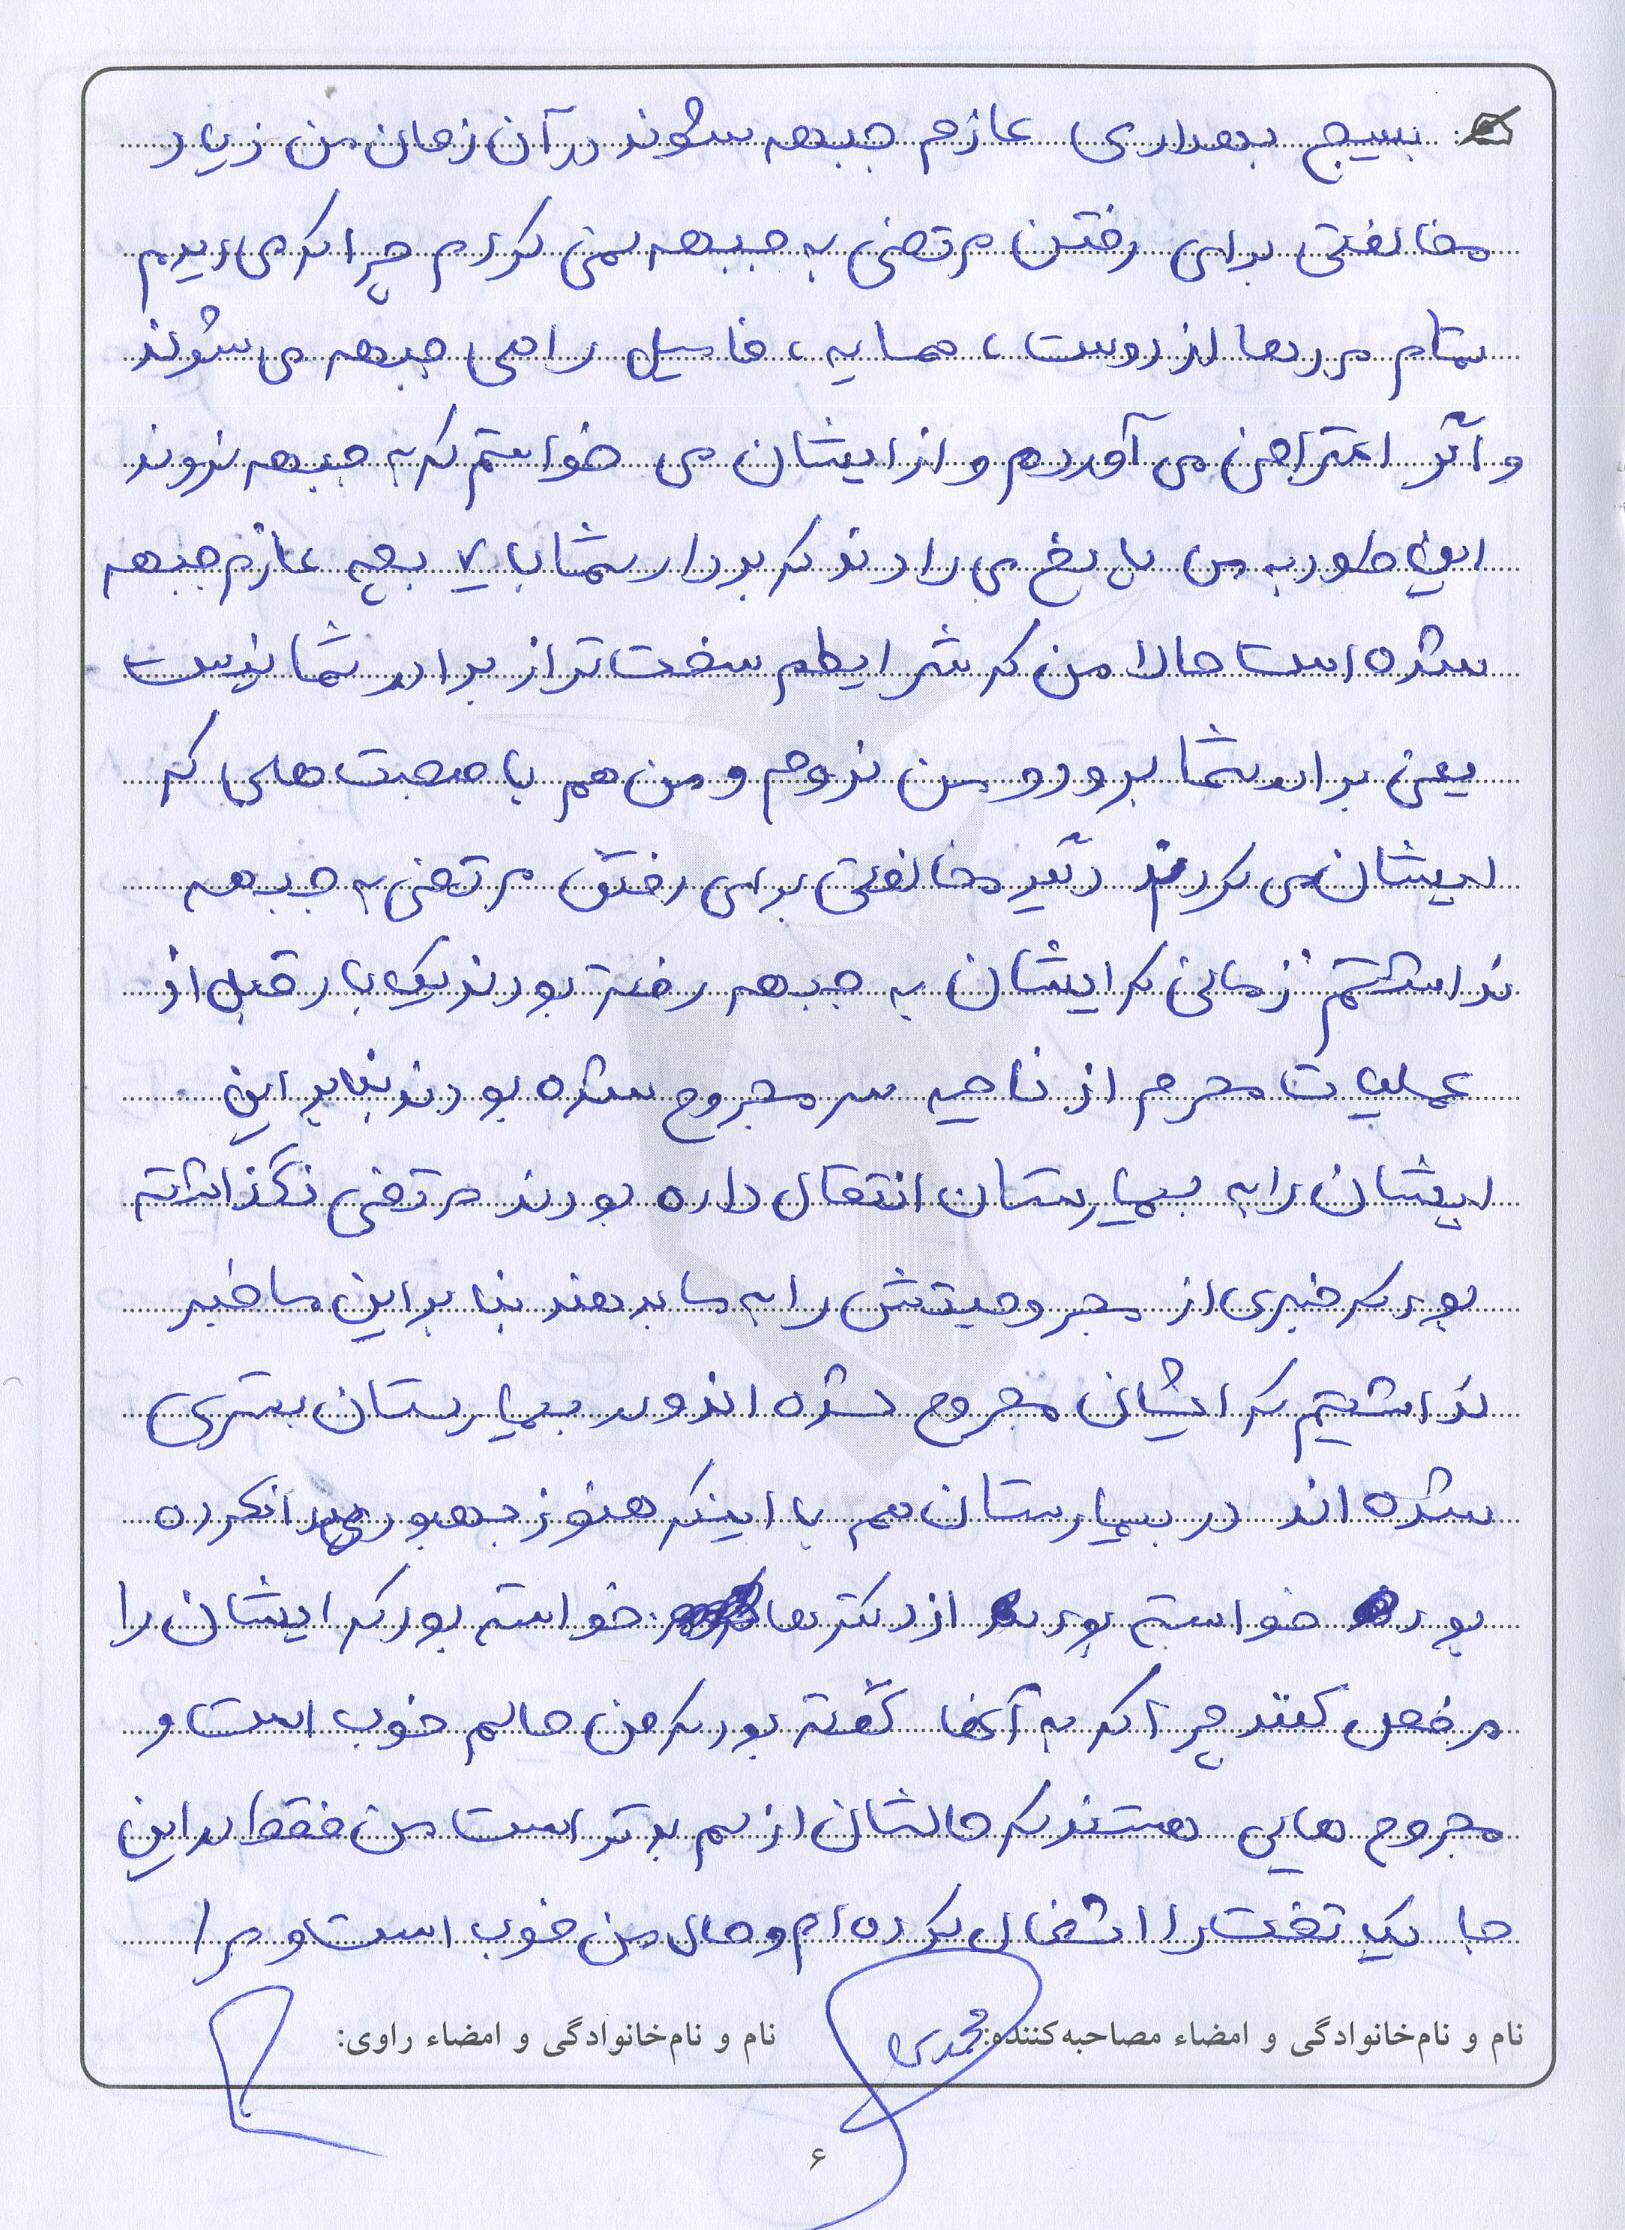 بسیج بهداری عازم جبهه شوند در آن زمان من زیاد
مخالفتی برای رفتن مرتضی به جبهه نمی کردم چرا که می دیدم
تمام مردها از دوست ، همسایه ، فامیل راهی جبهه می شوند
و اگر اعتراضی می آوردم و از ایشان می خواستم که به جبهه نروند
این طور به من پاسخ می دادند که برادر شما با ۷ بچه عازم جبهه
شده است حالا من که شرایطم سخت تر از برادر شما نیست
یعنی برادر شما برود و من نروم و من هم با صحبت هایی که
ایشان می کردند دیگر مخالفتی برای رفتن مرتضی به جبهه
نداشتم زمانی که ایشان به جبهه رفته بودند یک بار قبل از
عملیات محرم از ناحیه سر مجروح شده بودند بنابراین
ایشان را به بیمارستان انتقال داده بودند مرتضی نگذاشته
بود که خبری از مجروحیتش را به ما بدهند بنابراین ما خبر
نداشتیم که ایشان مجروح شده اند و در بیمارستان بستری
شده اند در بیمارستان هم با اینکه هنوز بهبودی پیدا نکرده
بود خواسته بود از دکترها خواسته بود که ایشان را
مرخص کنند چرا که به آنها گفته بود که من حالم خوب است و
مجروح هایی هستند که حالشان از من بدتر است من فقط در این
جا یک تخت را اشغال کرده ام و حال من خوب است و مرا
نام و نام‌خانوادگی و امضاء مصاحبه‌کننده: محمدی
نام و نام‌خانوادگی و امضاء راوی:
۶